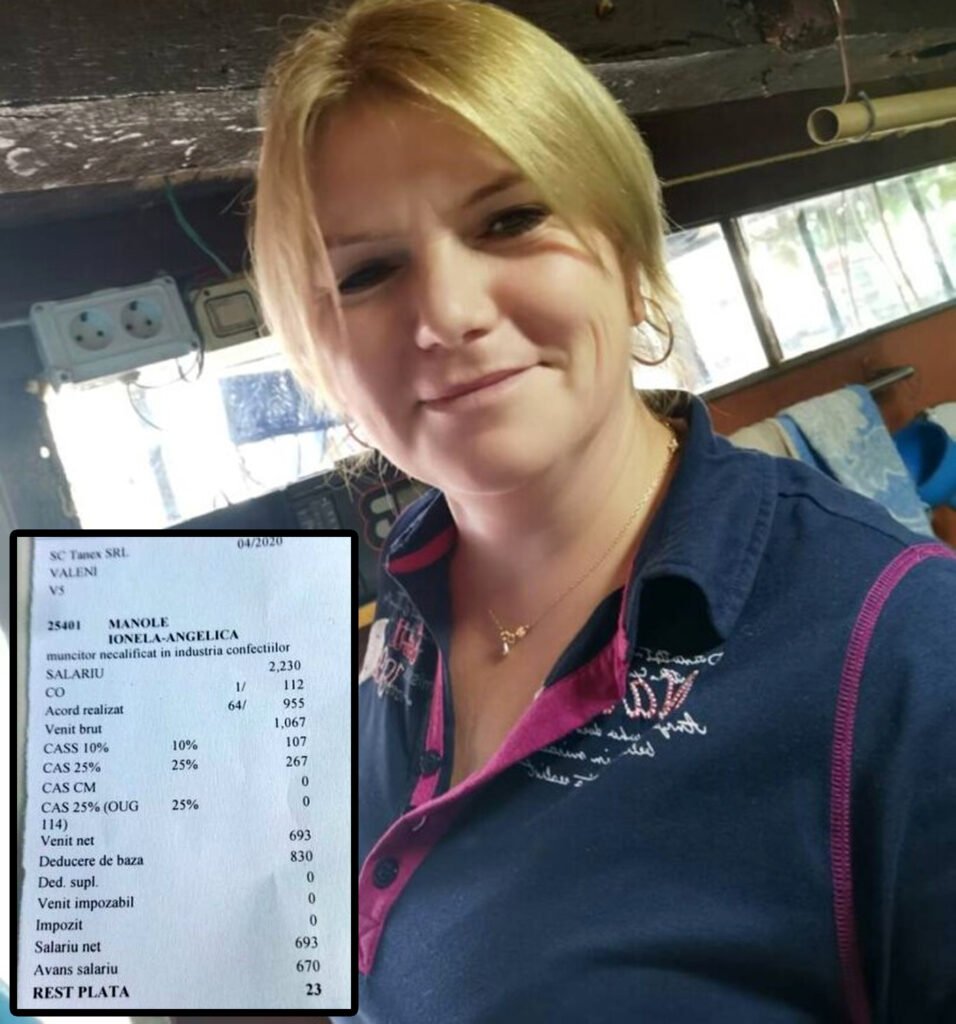 SC Tanex SRL 04/2020
VALENI
V5
25401 MANOLE
IONELA-ANGELICA
muncitor necalificat in industria confectiilor
SALARIU 2,230
CO 1/ 112
Acord realizat 64/ 955
Venit brut 1,067
CASS 10% 10% 107
CAS 25% 25% 267
CAS CM 0
CAS 25% (OUG 25% 0
114)
Venit net 693
Deducere de baza 830
Ded. supl. 0
Venit impozabil 0
Impozit 0
Salariu net 693
Avans salariu 670
REST PLATA 23